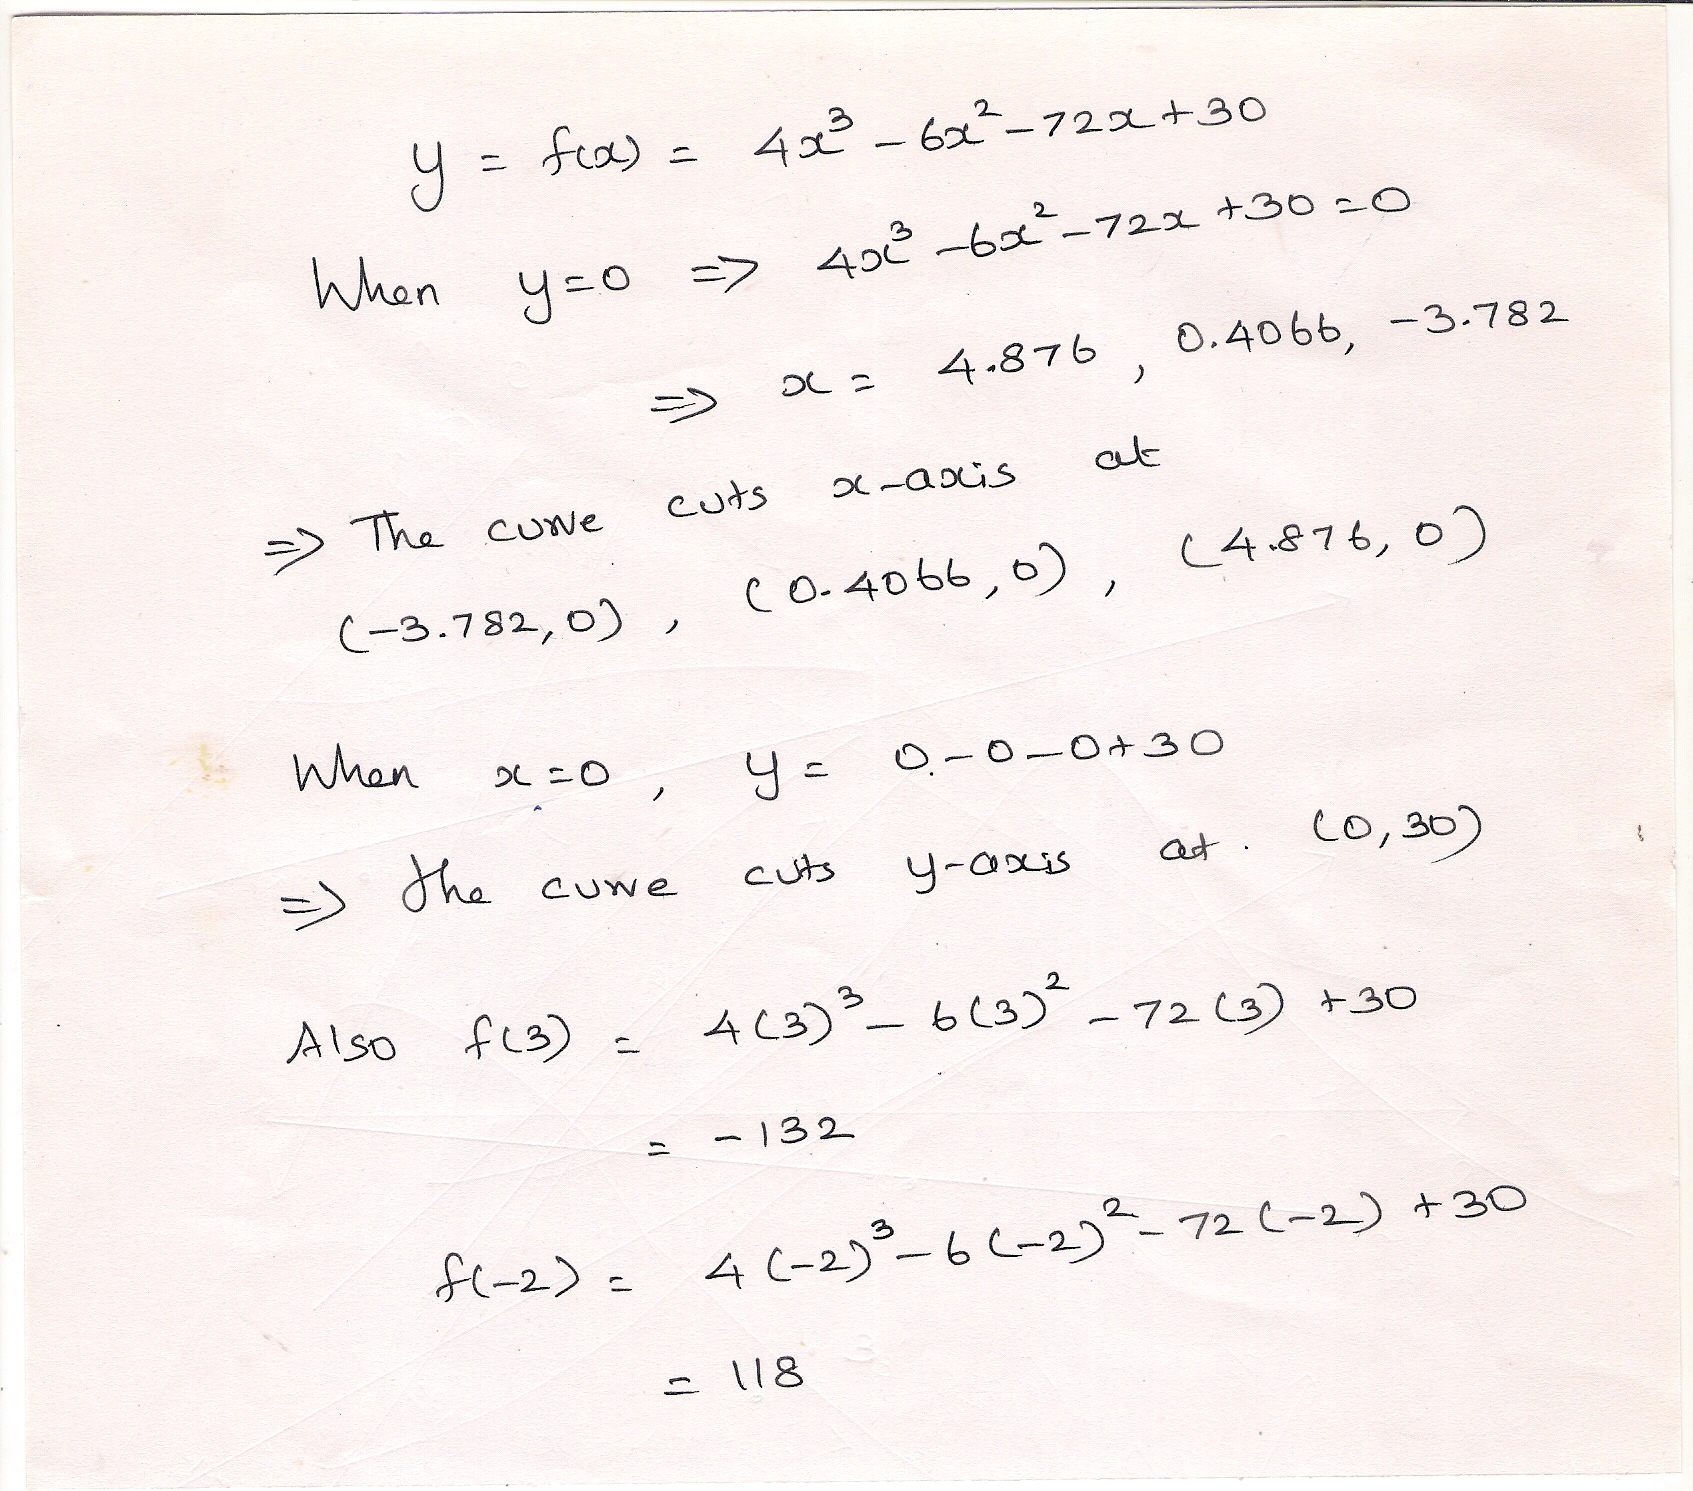 y = f(x) = 4x³ - 6x² - 72x + 30
When y=0 => 4x³ - 6x² - 72x + 30 = 0
=> x = 4.876, 0.4066, -3.782
=> The curve cuts x-axis at
(-3.782, 0), (0.4066, 0), (4.876, 0)
When x=0, y = 0-0-0+30
=> the curve cuts y-axis at (0, 30)
Also f(3) = 4(3)³ - 6(3)² - 72(3) + 30
= -132
f(-2) = 4(-2)³ - 6(-2)² - 72(-2) + 30
= 118